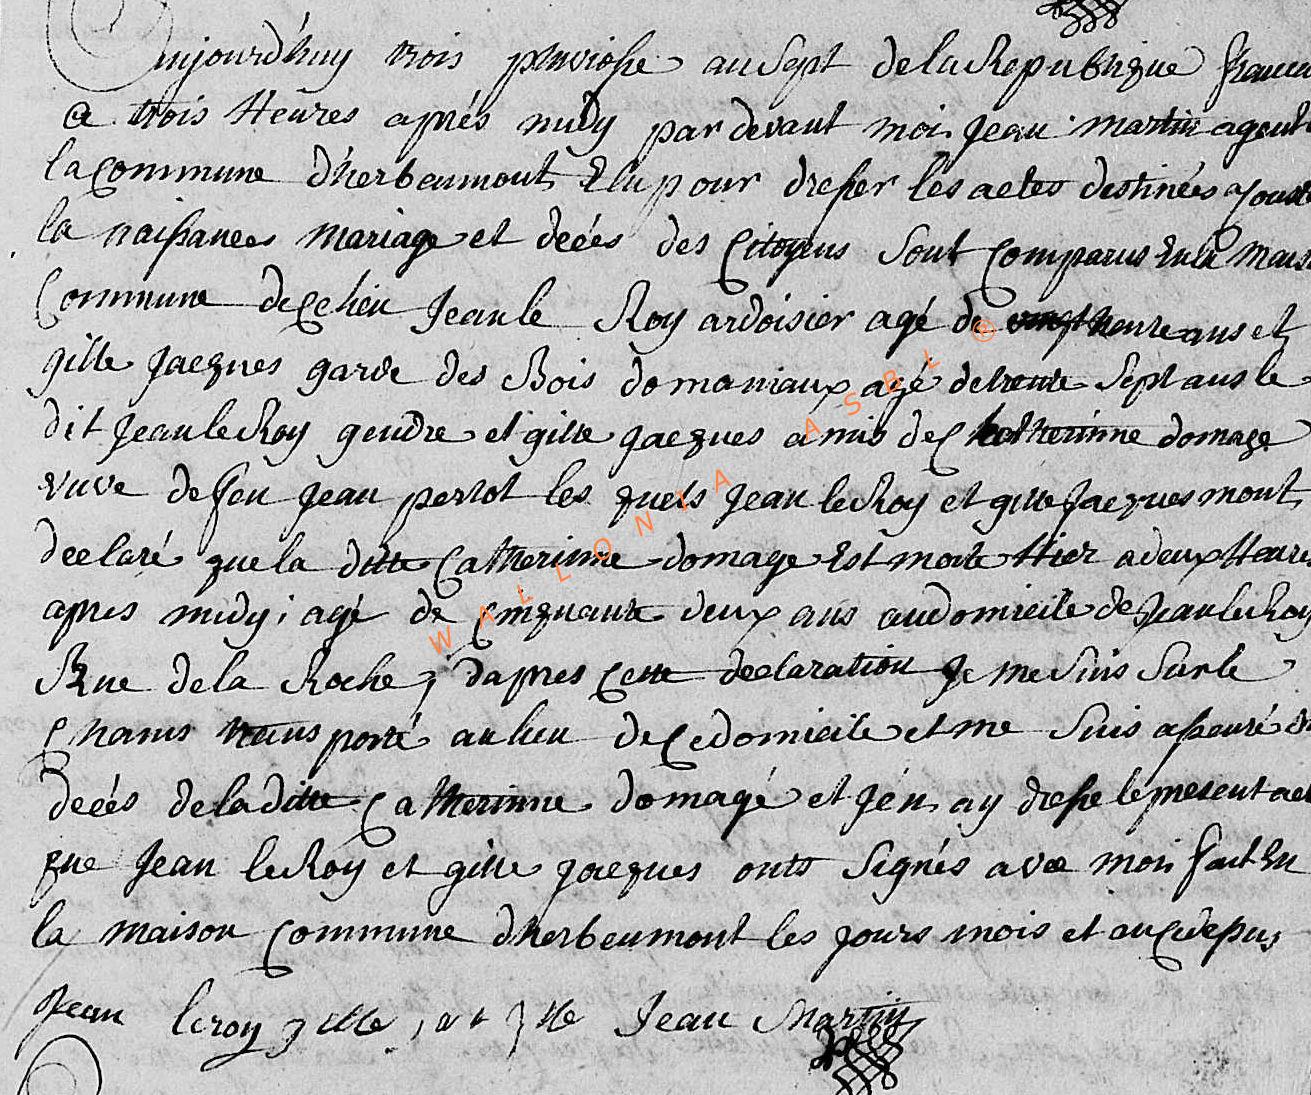 aujourd'huy trois pluviose an sept de la Republique francai
a trois Heures aprés midy par devant moi Jean martin agent
la Commune d'herbeumont Elu pour dresser les actes destinées a const
la naissances mariage et decés des Citoyens sont Comparus En la mais
Commune de Ce lieu Jean le Roy ardoisier agé de ans et
gille Jacques garde des Bois domaniaux agé de trente sept ans le
dit Jean le Roy gendre et gille Jacques amis de Catherinne domage
vuve de feu Jean perlot les quels Jean le Roy et gille Jacques mont
declaré que la ditte Catherinne domage Est morte Hier a deux Heures
apres midy ; agé de Cinquante deux ans au domicile de Jean le Roy
Rue de la Roche ; dapres Cette declaration Je me suis sur le
Chams transporté au lieu de Ce domicile et me suis asseuré d
decés de la ditte Catherinne domagé et J'én ay dresse le present act
que Jean le Roy et gille Jacques onts signés avec moi fait En
la maison Commune d'herbeumont les Jours mois et an Cydepus
Jean leroy gille Jean Martin
WALLONIA ASBL ®